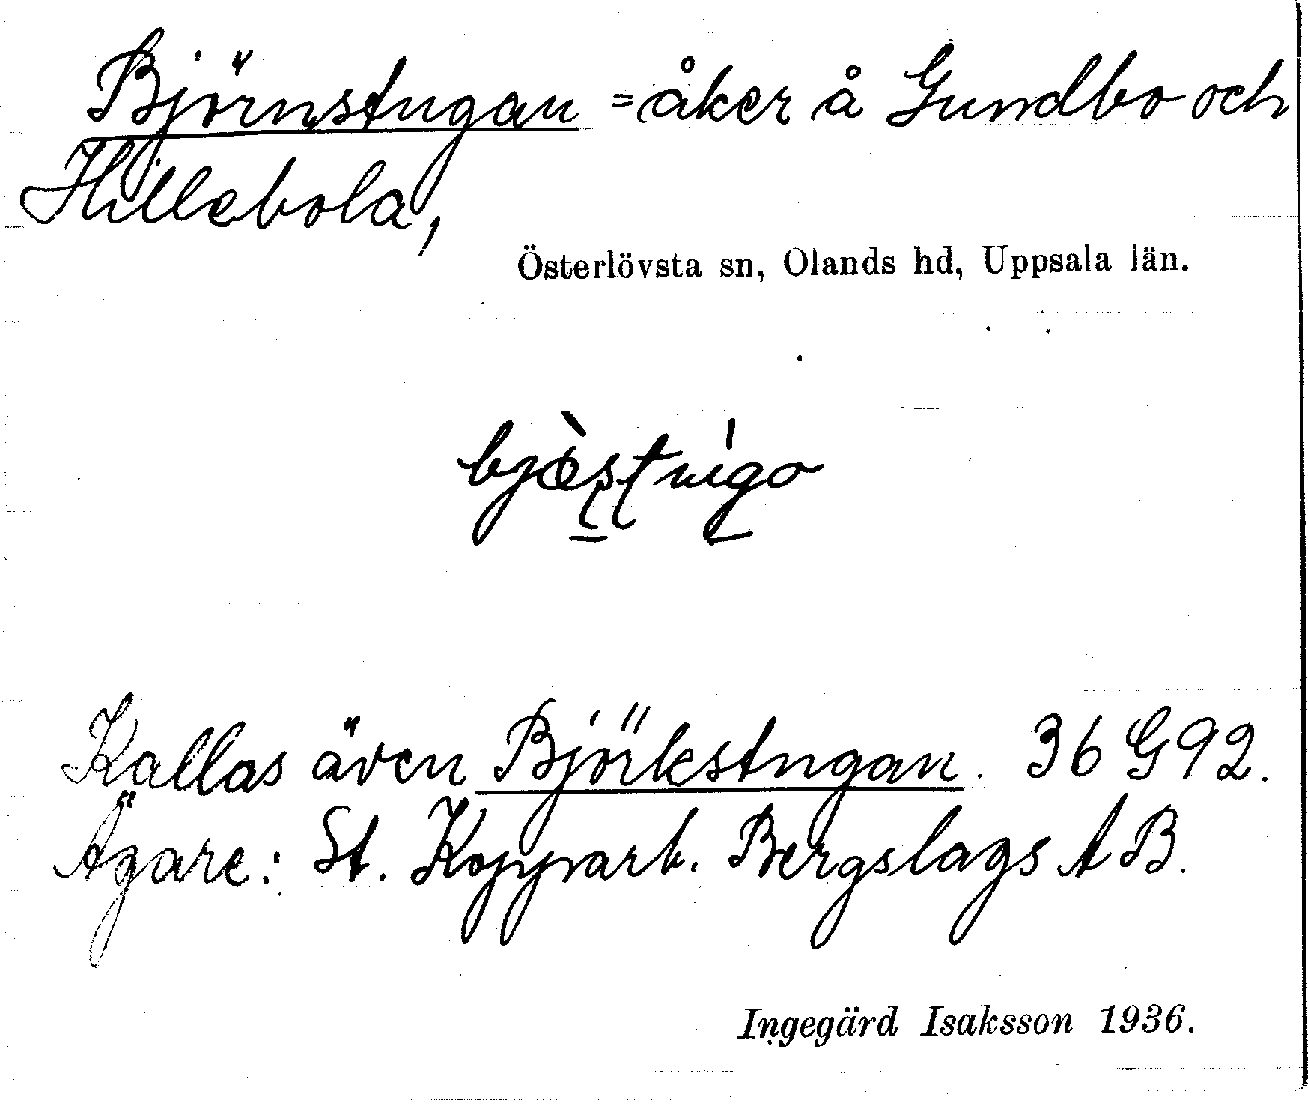 Björnstugan = åker å Gundbo och
Hillebola,
Österlövsta sn, Olands hd, Uppsala län.
Kallas även Björkstugan. 36 G92.
Ägare: St. Kopparb. Bergslags AB.
Ingegärd Isaksson 1936.